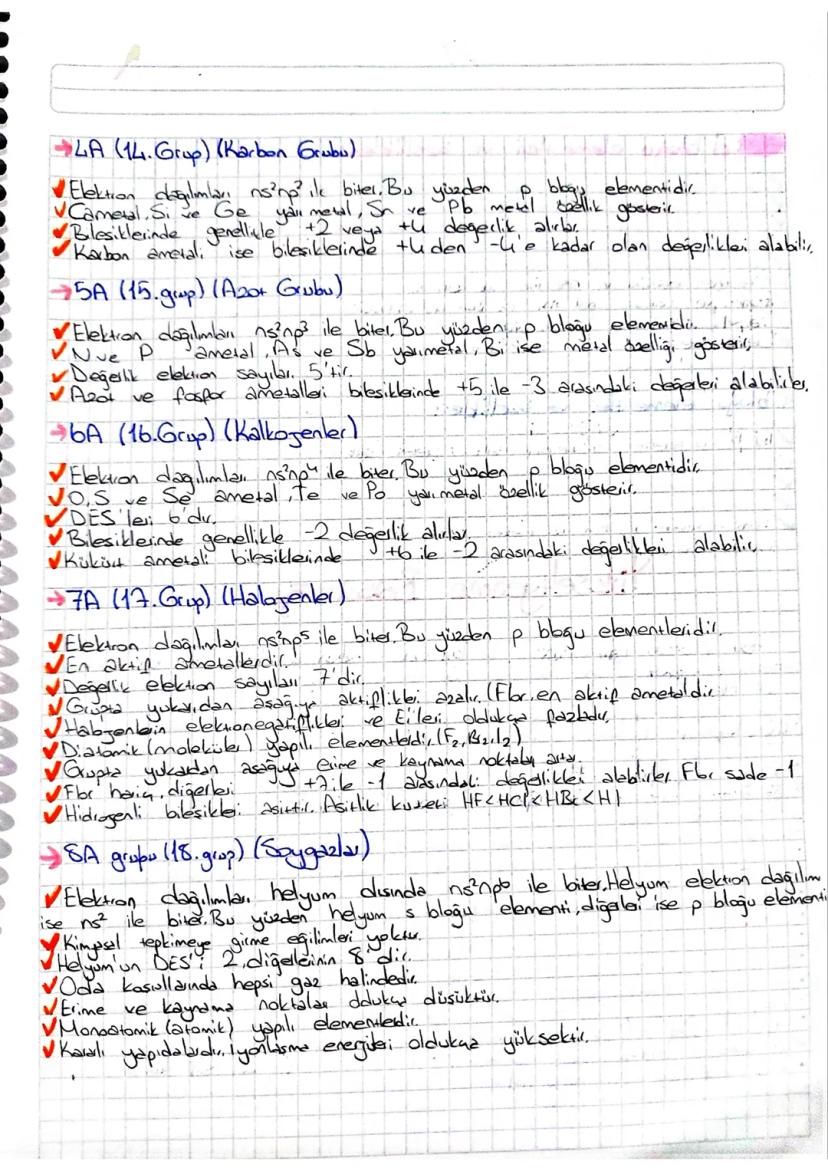 →4A (14.Grup) (Karbon Grubu)
✓Elektron dağılımları ns²np² ile biter. Bu yüzden p bloğu elementidir.
✓C ametal, Si ve Ge yarı metal, Sn ve Pb metal özellik gösterir.
✓Bileşiklerinde genellikle +2 veya +4 değerlik alırlar.
✓Karbon ametali ise bileşiklerinde +4 den -4'e kadar olan değerlikleri alabilir.
→5A (15.grup) (Azot Grubu)
✓Elektron dağılımları ns²np³ ile biter. Bu yüzden p bloğu elementidir.
✓N ve P ametal, As ve Sb yarımetal, Bi ise metal özelliği gösterir.
✓Değerlik elektron sayıları 5'tir.
✓Azot ve fosfor ametalleri bileşiklerinde +5 ile -3 arasındaki değerleri alabilirler.
→6A (16.Grup) (Kalkojenler)
✓Elektron dağılımları ns²np⁴ ile biter. Bu yüzden p bloğu elementidir.
✓O, S ve Se ametal, Te ve Po yarı metal özellik gösterir.
✓DES'leri 6'dır.
✓Bileşiklerinde genellikle -2 değerlik alırlar.
✓Kükürt ametali bileşiklerinde +6 ile -2 arasındaki değerlikleri alabilir.
→7A (17.Grup) (Halojenler)
✓Elektron dağılımları ns²np⁵ ile biter. Bu yüzden p bloğu elementleridir.
✓En aktif ametallerdir.
✓Değerlik elektron sayıları 7'dir.
✓Grupta yukarıdan aşağıya aktiflikleri azalır. (Flor, en aktif ametaldir
✓Halojenlerin elektronegatiflikleri ve Ei'leri oldukça fazladır.
✓Diatomik (moleküler) yapılı elementlerdir. (F₂, Br₂, I₂)
✓Grupta yukarıdan aşağıya erime ve kaynama noktaları artar.
✓Flor hariç, diğerleri +7 ile -1 arasındaki değerlikleri alabilirler. Flor sade -1
✓Hidrojenli bileşikleri asittir. Asitlik kuvveti HF<HCl<HBr<HI
→8A grubu (18.grup) (Soygazlar)
✓Elektron dağılımları helyum dışında ns²np⁶ ile biter. Helyum elektron dağılım
ise ns² ile biter. Bu yüzden helyum s bloğu elementi, diğerleri ise p bloğu elementi
✓Kimyasal tepkimeye girme eğilimleri yoktur.
✓Helyum'un DES'i 2, diğerlerinin 8'dir.
✓Oda koşullarında hepsi gaz halindedir.
✓Erime ve kaynama noktaları oldukça düşüktür.
✓Monoatomik (atomik) yapılı elementlerdir.
✓Kararlı yapıdalardır. İyonlaşma enerjileri oldukça yüksektir.